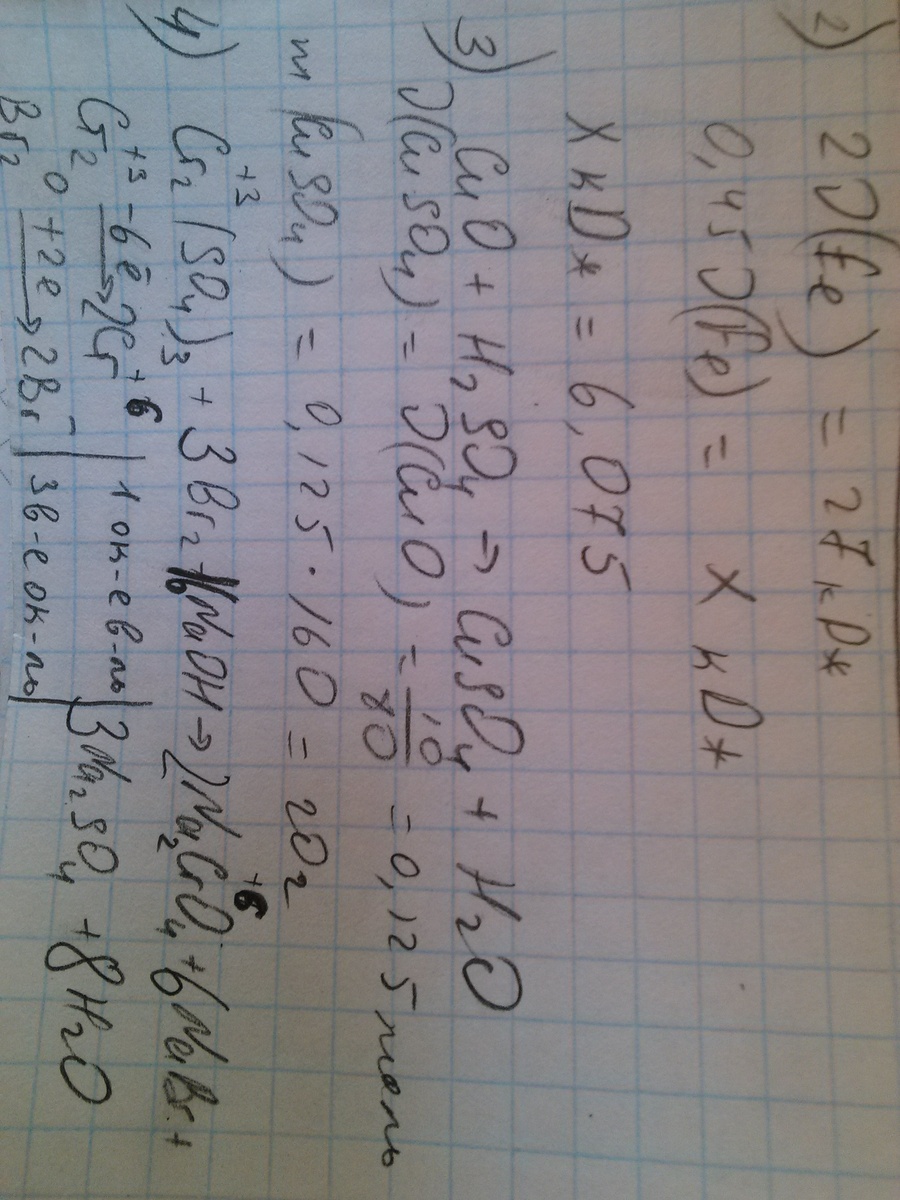 2) 2ν(Fe) = 27 кДж
0,45ν(Fe) = X кДж
X кДж = 6,075
3) CuO + H₂SO₄ → CuSO₄ + H₂O
ν(CuSO₄) = ν(CuO) = 10/80 = 0,125 моль
m(CuSO₄) = 0,125 · 160 = 20г
4) Cr₂⁺³(SO₄)₃ + 3Br₂ + 16NaOH → 2Na₂Cr⁺⁶O₄ + 6NaBr +
3Na₂SO₄ + 8H₂O
Cr₂⁺³ -6ē → 2Cr⁺⁶ | 1 ок-е в-ль |
Br₂⁰ +2e → 2Br⁻ | 3 в-е ок-ль |